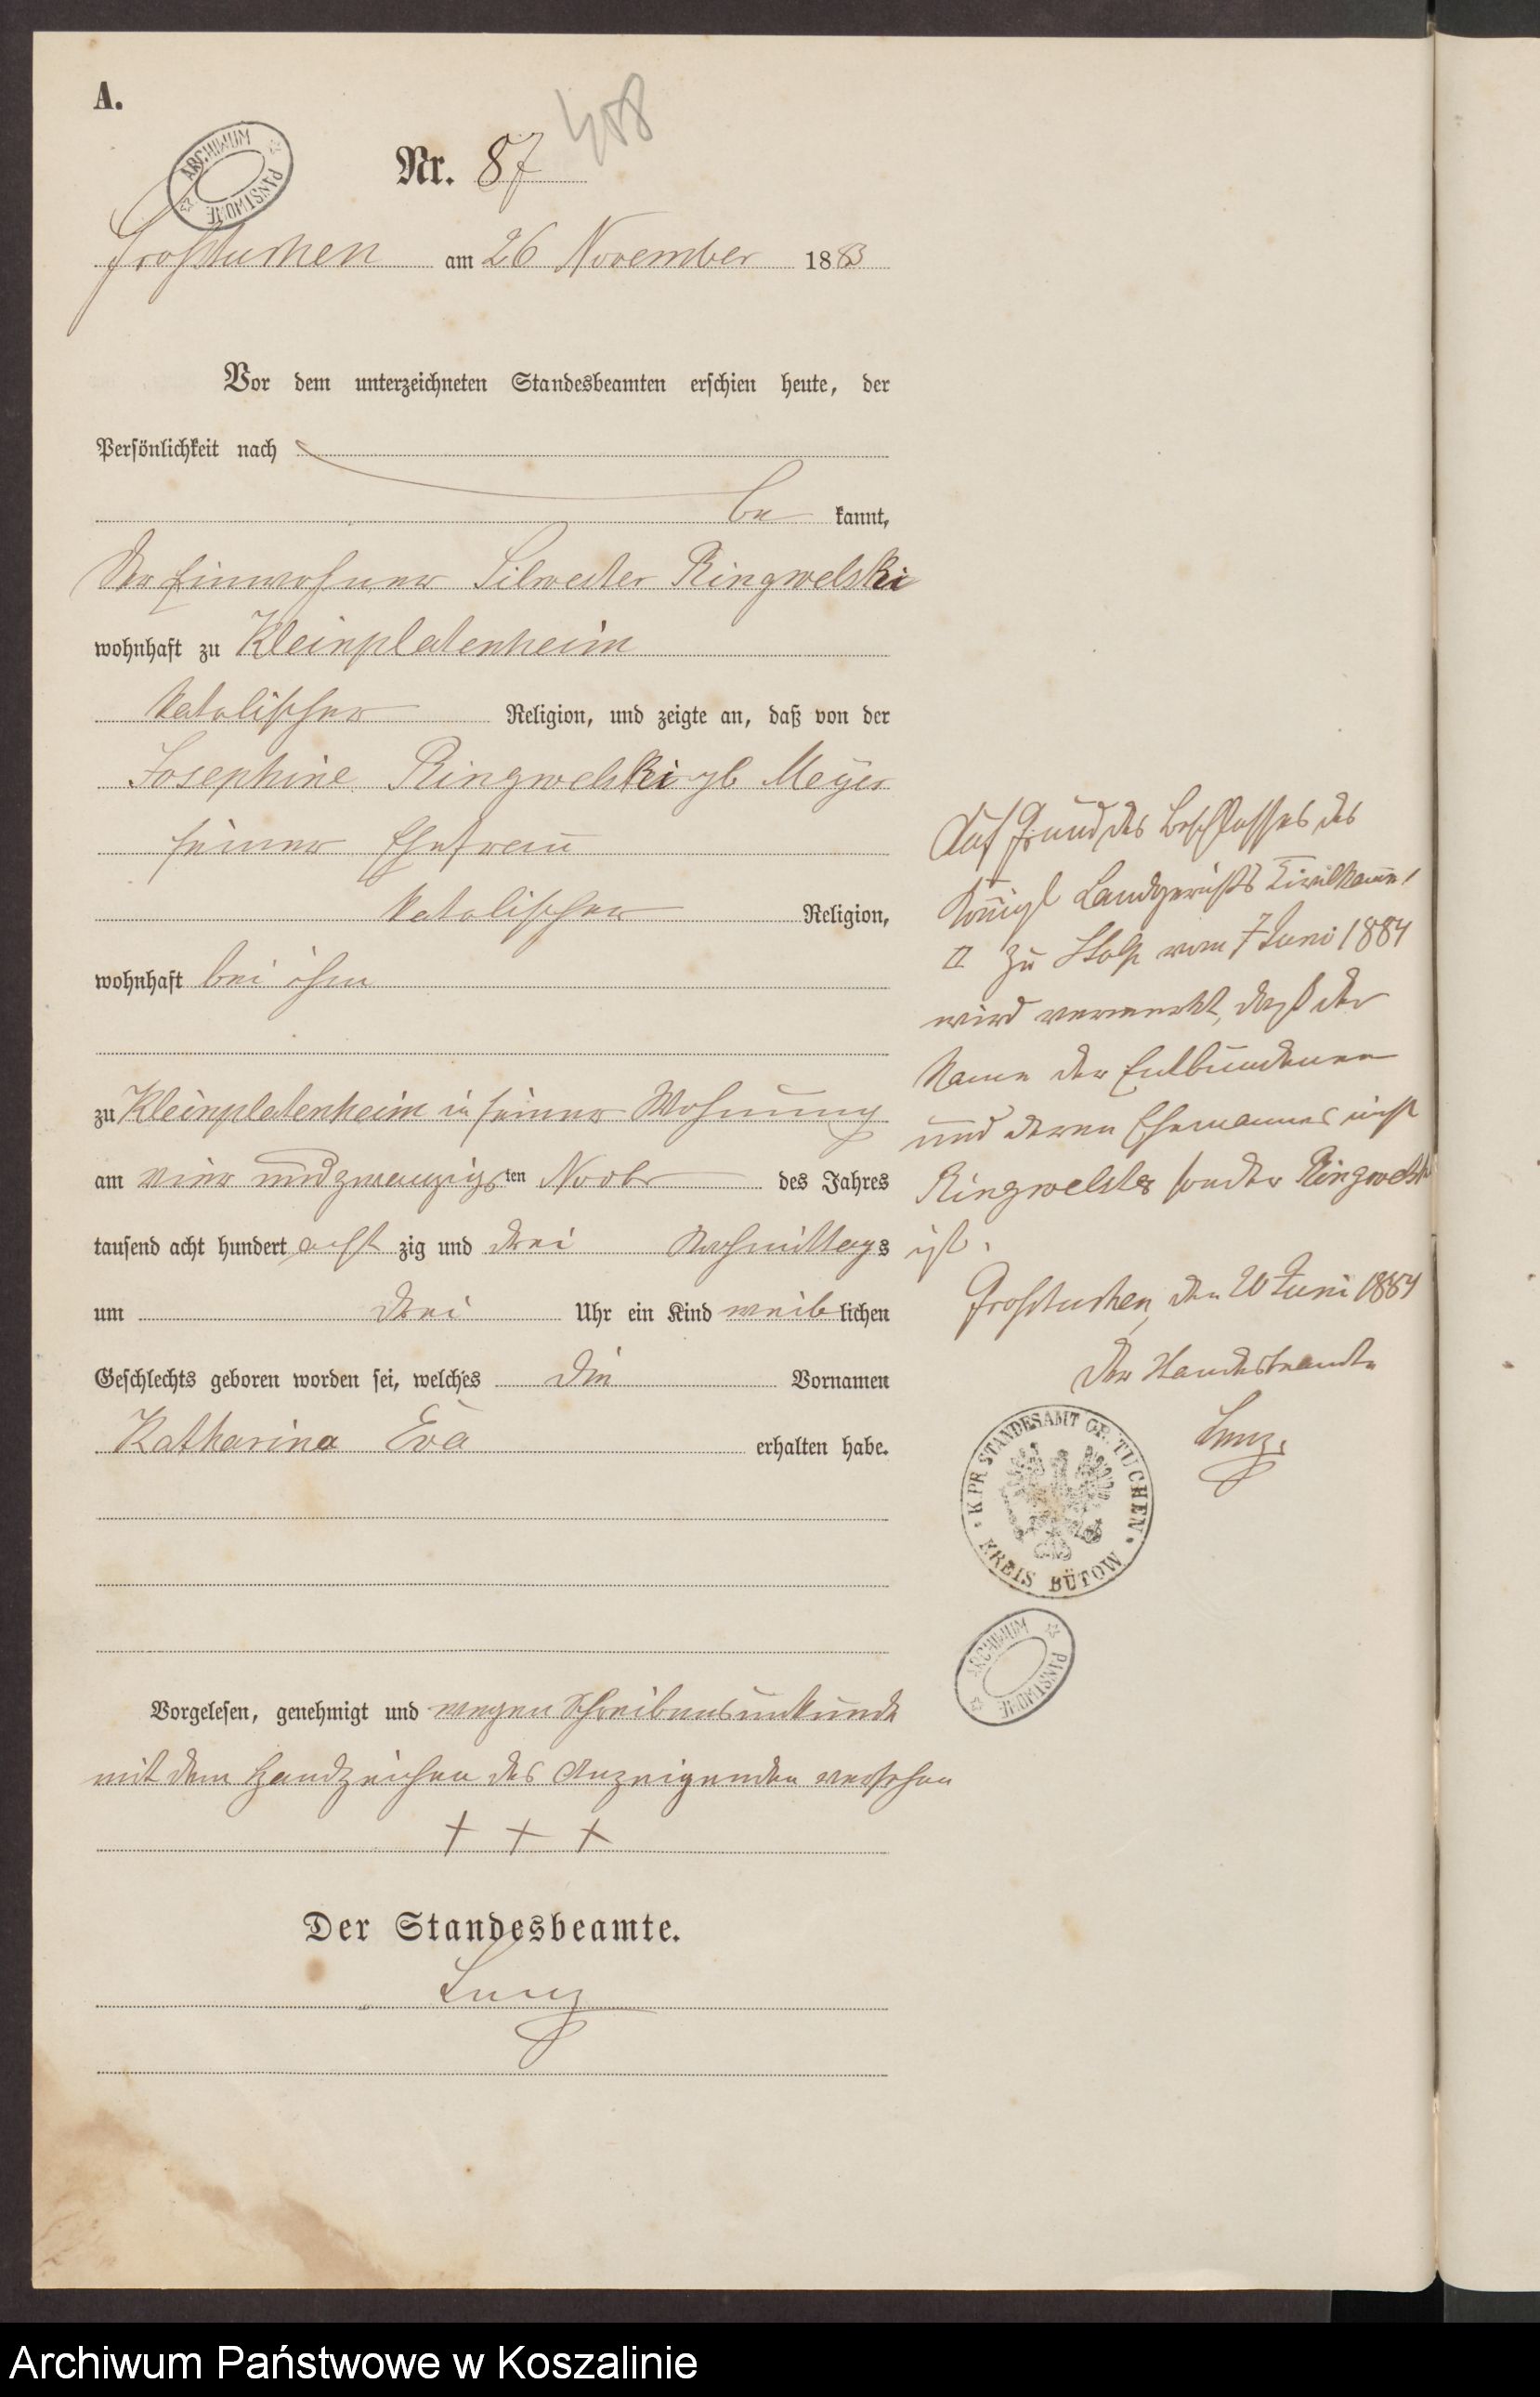 A.
ARCHIWUM PAŃSTWOWE
458
Nr. 87
Großtuchen am 26 November 1883
Vor dem unterzeichneten Standesbeamten erschien heute, der
Persönlichkeit nach
be kannt,
der Einwohner Silvester Ringwelski
wohnhaft zu Kleinplatenheim
katolischer Religion, und zeigte an, daß von der
Josephine Ringwelski gb Meyer
seiner Ehefrau
katolischer Religion,
wohnhaft bei ihm
zu Kleinplatenheim in seiner Wohnung
am vier und zwanzigsten Novbr des Jahres
tausend acht hundert acht zig und drei Nachmittags
um drei Uhr ein Kind weiblichen
Geschlechts geboren worden sei, welches die Vornamen
Katharina Eva erhalten habe.
Vorgelesen, genehmigt und wegen Schreibensunkunde
mit dem Handzeichen des Anzeigenden versehen
+ + +
Der Standesbeamte.
Lunz
Auf Grund des Beschlusses des
Königl Landgerichts Civilkamr
II zu Stolp vom 7 Juni 1884
wird vermerkt, daß der
Name der Entbundenen
und deren Ehemannes nicht
Ringwelster sonder Ringwelski
ist.
Großtuchen, den 20 Juni 1884
Der Standesbeamte
Lunz.
K. PR. STANDESAMT GR. TUCHEN
KREIS BÜTOW
ARCHIWUM PAŃSTWOWE
Archiwum Państwowe w Koszalinie